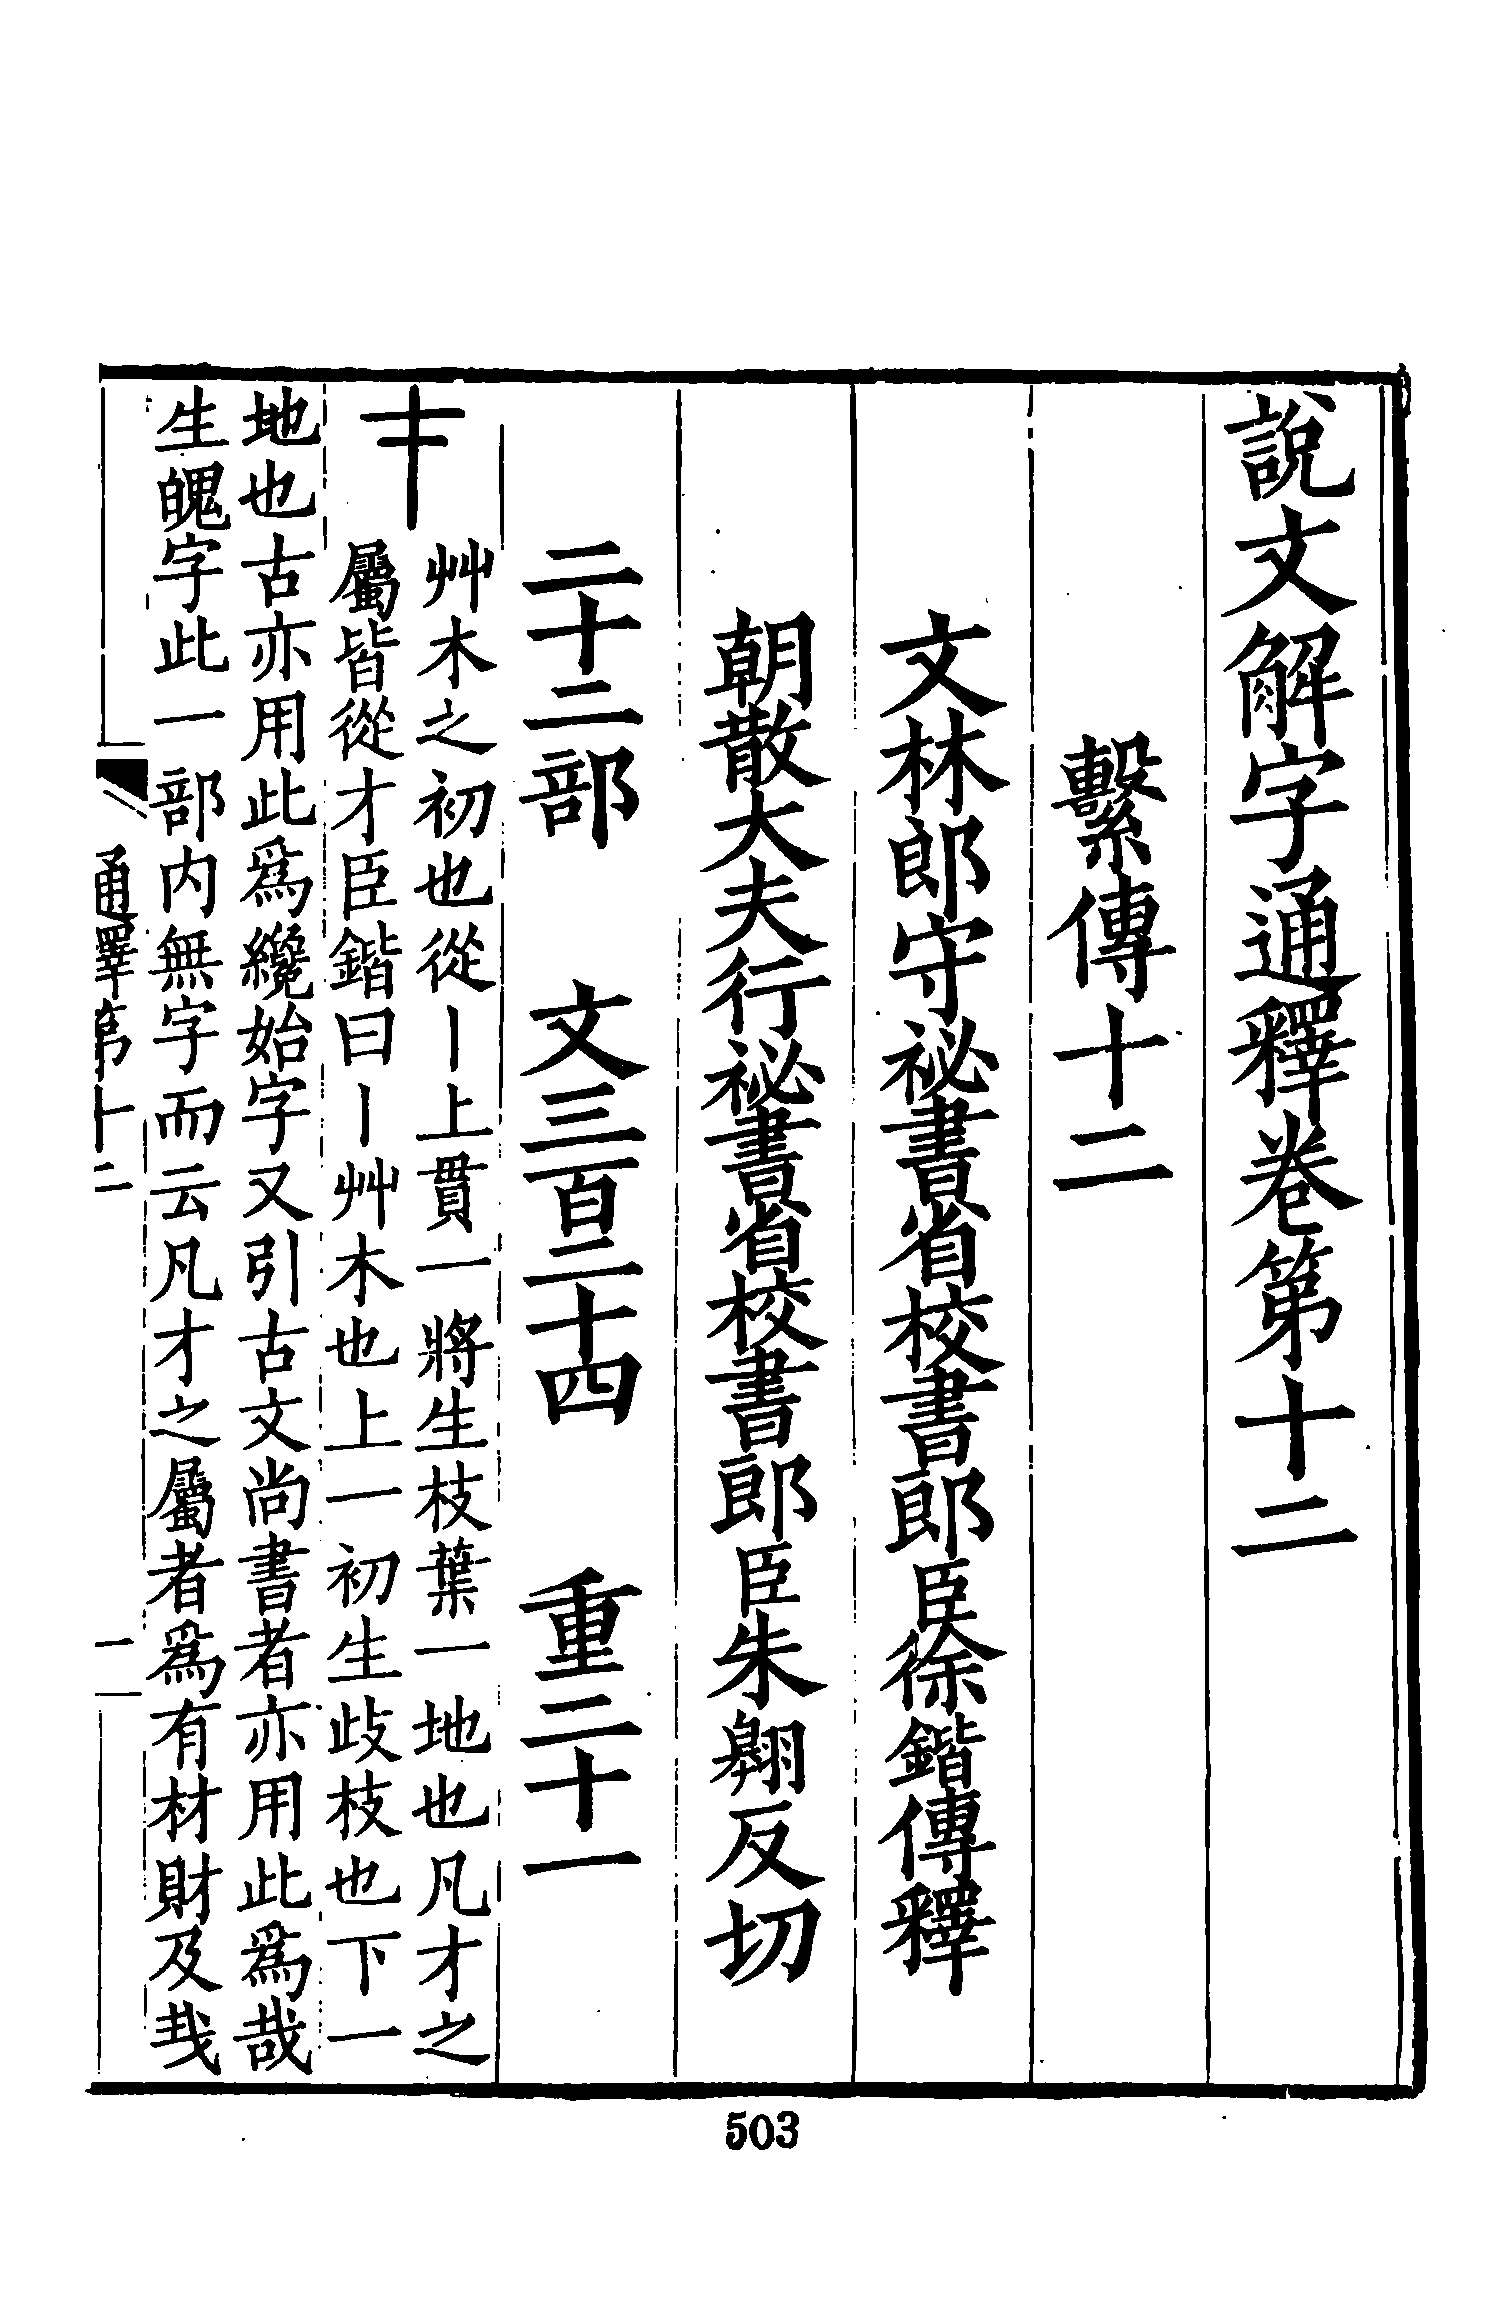 說文解字通釋卷第十二
繫傳十二
文林郎守祕書省校書郎臣徐鍇傳釋
朝散大夫行祕書省校書郎臣朱翶反切
二十二部　文三百二十四　重二十一
才
艸木之初也從丨上貫一將生枝葉一地也凡才之
屬皆從才臣鍇曰丨艸木也上一初生歧枝也下一
地也古亦用此爲纔始字又引古文尚書者亦用此爲哉
生魄字此一部内無字而云凡才之屬者爲有材財及𢦏
通釋第十二
一
503